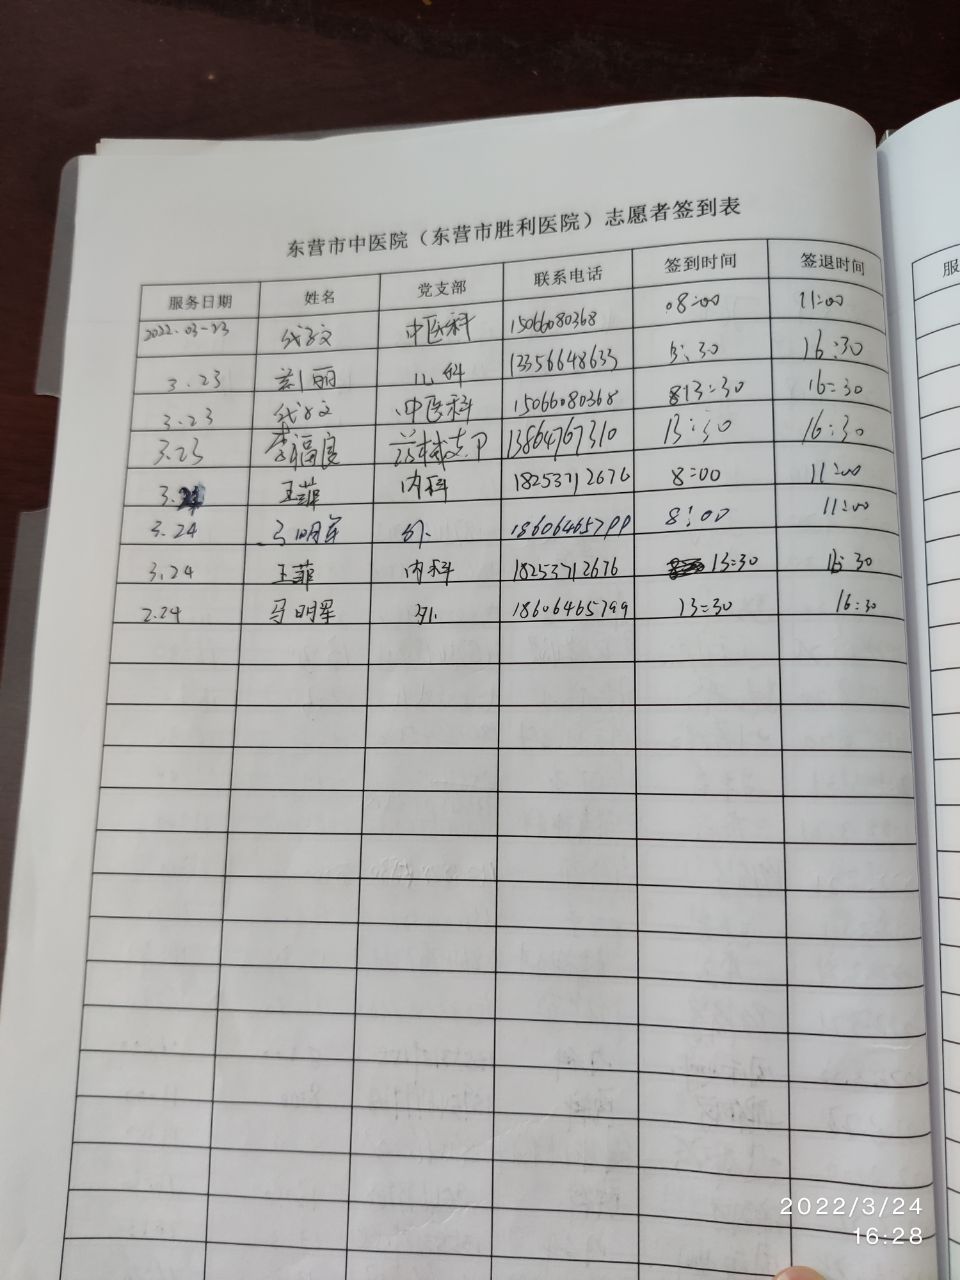 东营市中医院（东营市胜利医院）志愿者签到表
服务日期 姓名 党支部 联系电话 签到时间 签退时间 服
2022.03-23 中医科 15066080368 08:00 11:00
3.23 刘丽 儿科 13356648633 13:30 16:30
3.23 中医科 15066080368 13:30 16:30
3.23 李福良 13864767310 13:30 16:30
3.24 王菲 内科 18253712676 8:00 11:00
3.24 马明军 外 8:00 11:00
3.24 王菲 内科 18253712676 13:30 16:30
2.24 马明军 外 18606465799 13:30 16:30
2022/3/24
16:28